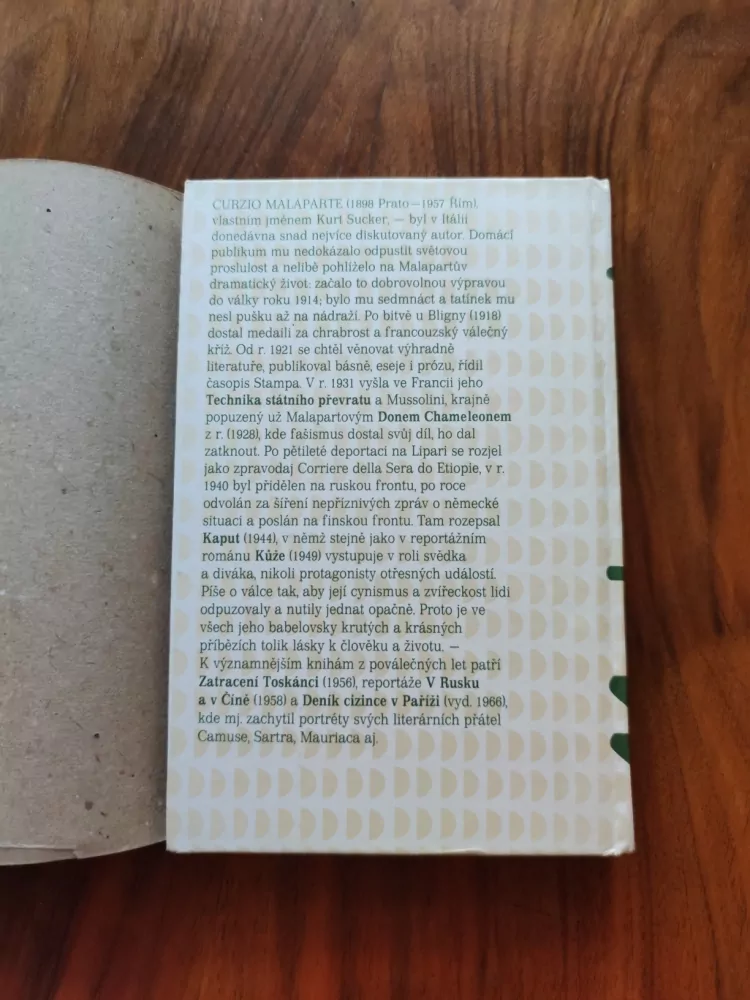 CURZIO MALAPARTE (1898 Prato—1957 Řím),
vlastním jménem Kurt Sucker, — byl v Itálii
donedávna snad nejvíce diskutovaný autor. Domácí
publikum mu nedokázalo odpustit světovou
proslulost a nelibě pohlíželo na Malapartův
dramatický život: začalo to dobrovolnou výpravou
do války roku 1914; bylo mu sedmnáct a tatínek mu
nesl pušku až na nádraží. Po bitvě u Bligny (1918)
dostal medaili za chrabrost a francouzský válečný
kříž. Od r. 1921 se chtěl věnovat výhradně
literatuře, publikoval básně, eseje i prózu, řídil
časopis Stampa. V r. 1931 vyšla ve Francii jeho
Technika státního převratu a Mussolini, krajně
popuzený už Malapartovým Donem Chameleonem
z r. (1928), kde fašismus dostal svůj díl, ho dal
zatknout. Po pětileté deportaci na Lipari se rozjel
jako zpravodaj Corriere della Sera do Etiopie, v r.
1940 byl přidělen na ruskou frontu, po roce
odvolán za šíření nepříznivých zpráv o německé
situaci a poslán na finskou frontu. Tam rozepsal
Kaput (1944), v němž stejně jako v reportážním
románu Kůže (1949) vystupuje v roli svědka
a diváka, nikoli protagonisty otřesných událostí.
Píše o válce tak, aby její cynismus a zvířeckost lidi
odpuzovaly a nutily jednat opačně. Proto je ve
všech jeho babelovsky krutých a krásných
příbězích tolik lásky k člověku a životu. —
K významnějším knihám z poválečných let patří
Zatracení Toskánci (1956), reportáže V Rusku
a v Číně (1958) a Deník cizince v Paříži (vyd. 1966),
kde mj. zachytil portréty svých literárních přátel
Camuse, Sartra, Mauriaca aj.